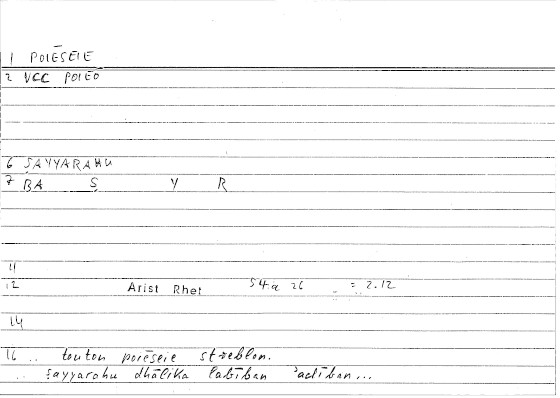 1 POIĒSEIE
2 VCC POIEO
6 ṢAYYARAHU
7 BA Ṣ Y R
11
12 Arist Rhet 54a 26 = 2.12
14
16 .. touton poiēseie streblon.
.. ṣayyarahu dhālika